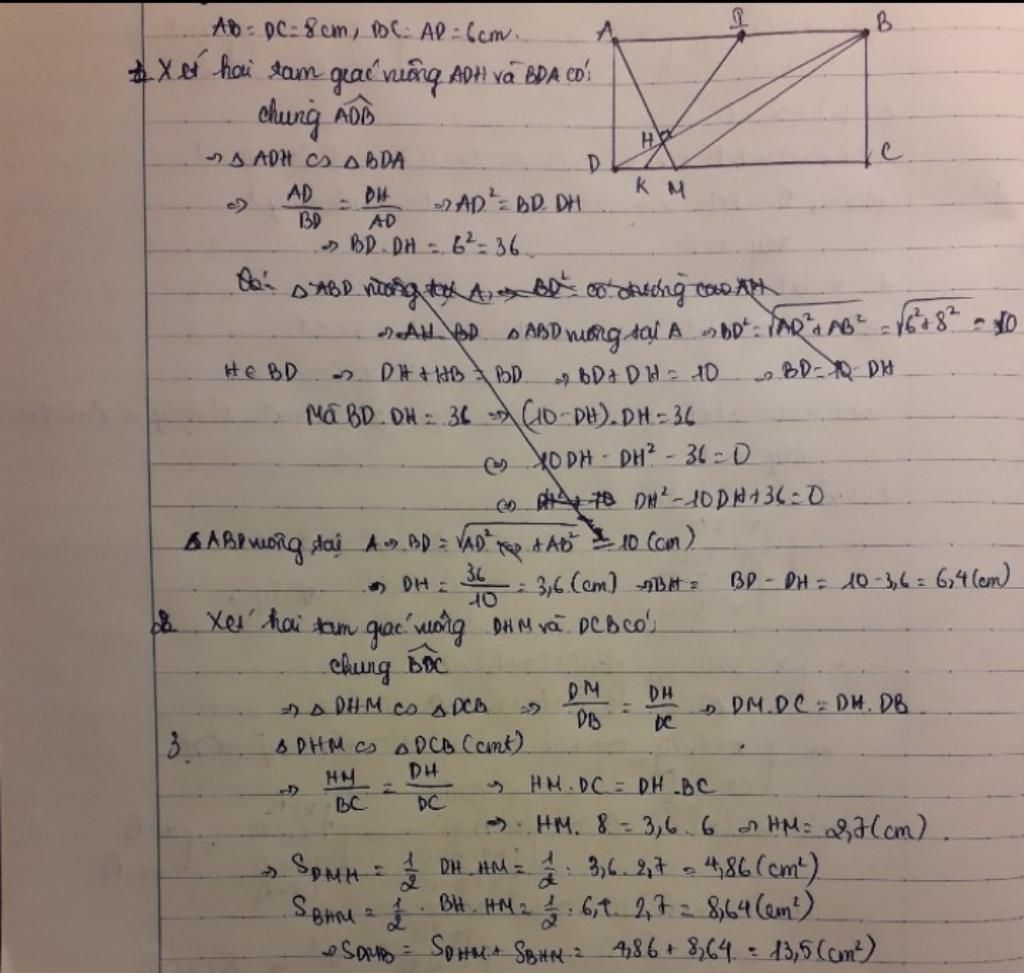 AB = DC = 8cm, BC = AD = 6cm.
A P B
1. Xét hai tam giác vuông ADH và BDA có:
chung ADB
H
D K M C
⇒ △ ADH ∽ △ BDA
⇒ AD/BD = DH/AD ⇒ AD² = BD.DH
⇒ BD.DH = 6² = 36.
Có: △ ABD vuông tại A ⇒ BD² = có đường cao AH
⇒ AH BD △ ABD vuông tại A ⇒ BD² = √AD² + AB² = √6² + 8² = 10
H ∈ BD ⇒ DH + HB = BD ⇒ BD + DH = 10 ⇒ BD = 10 - DH
Mà BD.DH = 36 ⇒ (10 - DH).DH = 36
⇔ 10DH - DH² - 36 = 0
⇔ DH² + 10 DH² - 10DH + 36 = 0
△ ABD vuông tại A ⇒ BD = √AD² + AB² = 10 (cm)
⇒ DH = 36/10 = 3,6 (cm) ⇒ BH = BD - DH = 10 - 3,6 = 6,4 (cm)
2. Xét hai tam giác vuông DHM và DCB có:
chung BDC
⇒ △ DHM ∽ △ DCB ⇒ DM/DB = DH/DC ⇒ DM.DC = DH.DB
3. △ DHM ∽ △ DCB (cmt)
⇒ HM/BC = DH/DC ⇒ HM.DC = DH.BC
⇒ HM.8 = 3,6.6 ⇒ HM = 2,7 (cm).
⇒ S DMH = 1/2 DH.HM = 1/2.3,6.2,7 = 4,86 (cm²)
S BHM = 1/2.BH.HM = 1/2.6,4.2,7 = 8,64 (cm²)
⇒ S DMB = S DHM + S BHM = 4,86 + 8,64 = 13,5 (cm²)